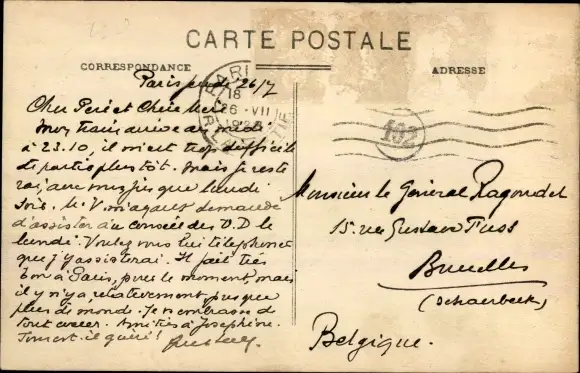 CARTE POSTALE
CORRESPONDANCE
ADRESSE
Paris jeudi 26/7
PARIS
18
26 - VII
Cher Père et Chère Mère
Mon train arrive au midi
à 23.10, il m'est trop difficile
de partir plus tôt. Mais je reste
jusque lundi
soir. M. V. m'ayant demandé
d'assister au conseil des V.D le
lundi. Voulez vous lui téléphoner
que j'y assisterai. Il fait très
bon à Paris, pour le moment, mais
il n'y a relativement presque
plus de monde. Je vous embrasse de
tout coeur. Amitiés à Joséphine.
est-il guéri?
102
Monsieur le Général Ragondet
15. rue Gustave Fuss
Bruxelles
(Schaerbeek)
Belgique.